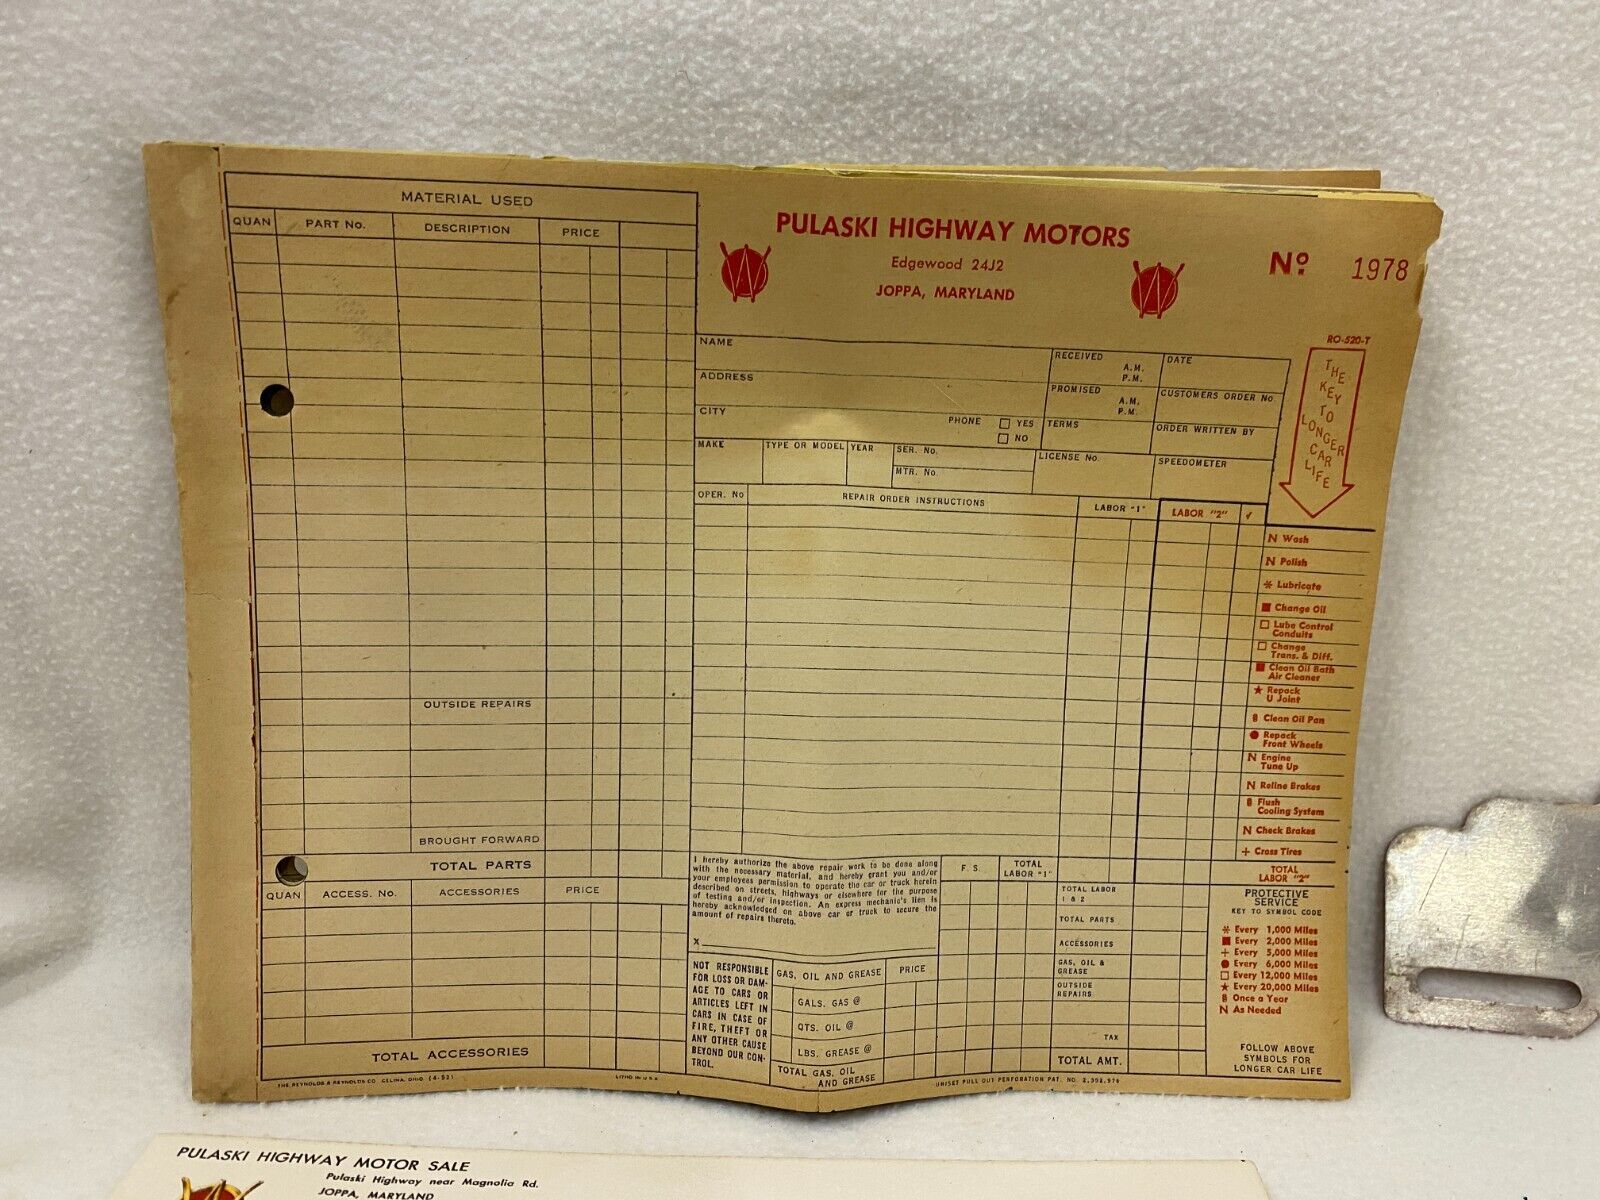 MATERIAL USED
QUAN PART No. DESCRIPTION PRICE
OUTSIDE REPAIRS
BROUGHT FORWARD
TOTAL PARTS
QUAN ACCESS. No. ACCESSORIES PRICE
TOTAL ACCESSORIES
THE REYNOLDS & REYNOLDS CO. CELINA, OHIO (4-52)
LITHO IN U.S.A.
PULASKI HIGHWAY MOTORS
Edgewood 24J2
JOPPA, MARYLAND
No. 1978
RO-520-T
THE
KEY
TO
LONGER
CAR
LIFE
NAME
RECEIVED A.M. P.M.
DATE
ADDRESS
PROMISED A.M. P.M.
CUSTOMERS ORDER No.
CITY
PHONE YES
NO
TERMS
ORDER WRITTEN BY
MAKE TYPE OR MODEL YEAR SER. No.
MTR. No.
LICENSE No.
SPEEDOMETER
OPER. No REPAIR ORDER INSTRUCTIONS LABOR "1" LABOR "2" ✓
N Wash
N Polish
* Lubricate
■ Change Oil
□ Lube Control
Conduits
□ Change
Trans. & Diff.
■ Clean Oil Bath
Air Cleaner
★ Repack
U Joint
8 Clean Oil Pan
● Repack
Front Wheels
N Engine
Tune Up
N Reline Brakes
8 Flush
Cooling System
N Check Brakes
+ Cross Tires
TOTAL
LABOR "2"
I hereby authorize the above repair work to be done along
with the necessary material, and hereby grant you and/or
your employees permission to operate the car or truck herein
described on streets, highways or elsewhere for the purpose
of testing and/or inspection. An express mechanic's lien is
hereby acknowledged on above car or truck to secure the
amount of repairs thereto.
X
F. S. TOTAL
LABOR "1"
TOTAL LABOR
1 & 2
TOTAL PARTS
ACCESSORIES
GAS, OIL &
GREASE
OUTSIDE
REPAIRS
TAX
TOTAL AMT.
NOT RESPONSIBLE
FOR LOSS OR DAM-
AGE TO CARS OR
ARTICLES LEFT IN
CARS IN CASE OF
FIRE, THEFT OR
ANY OTHER CAUSE
BEYOND OUR CON-
TROL.
GAS, OIL AND GREASE PRICE
GALS. GAS @
QTS. OIL @
LBS. GREASE @
TOTAL GAS, OIL
AND GREASE
UNISET PULL OUT PERFORATION PAT. NO. 2,392,976
PROTECTIVE
SERVICE
KEY TO SYMBOL CODE
* Every 1,000 Miles
■ Every 2,000 Miles
+ Every 5,000 Miles
● Every 6,000 Miles
□ Every 12,000 Miles
★ Every 20,000 Miles
8 Once a Year
N As Needed
FOLLOW ABOVE
SYMBOLS FOR
LONGER CAR LIFE
PULASKI HIGHWAY MOTOR SALE
Pulaski Highway near Magnolia Rd.
JOPPA, MARYLAND